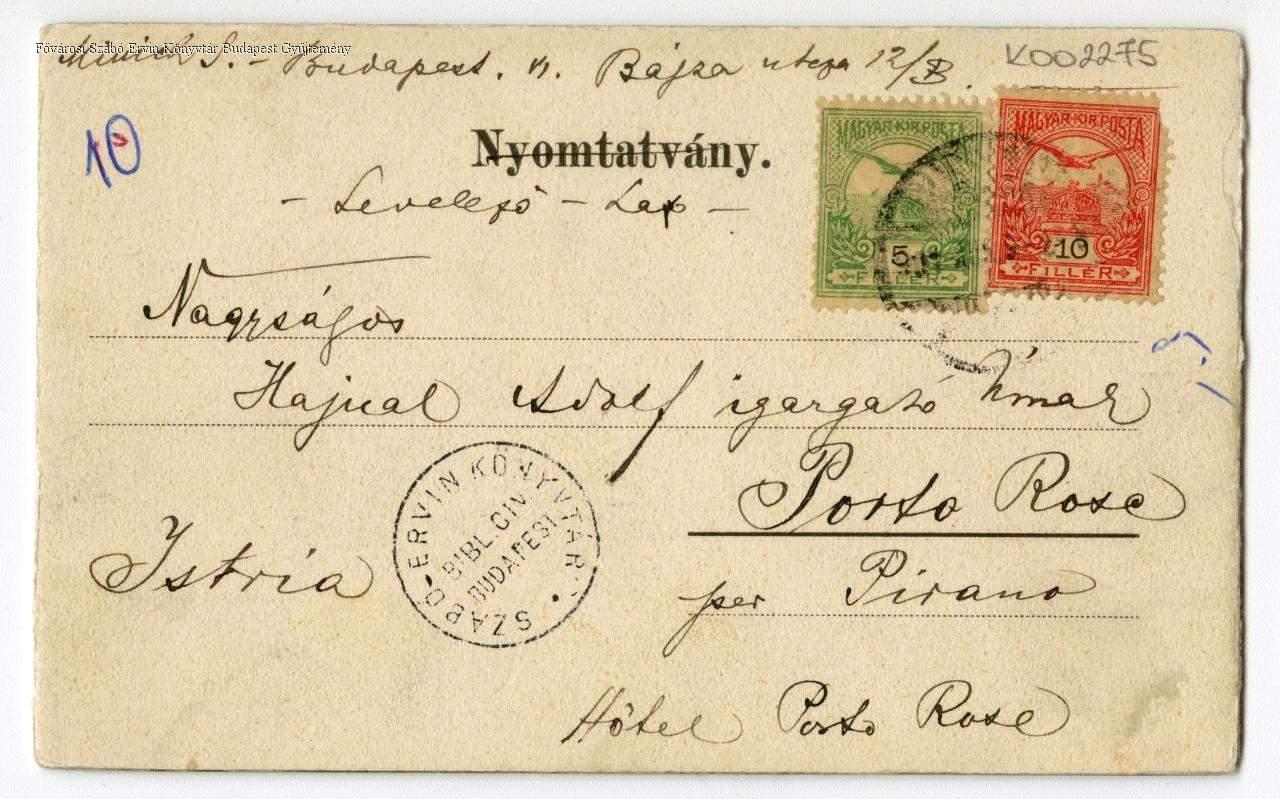 Fővárosi Szabó Ervin Könyvtár Budapest Gyűjtemény
Budapest. VI. Bajza utcza 12/B.
K002275
10
Nyomtatvány.
- Levelező - Lap -
MAGYAR·KIR·POSTA
5
FILLÉR
MAGYAR·KIR·POSTA
10
FILLÉR
Nagyságos
Hajnal Adolf igazgató Úrnak
Porto Rose
SZABÓ-ERVIN KÖNYVTÁR
BIBL. CIV.
BUDAPEST
Istria
per Pirano
Hôtel Porto Rose